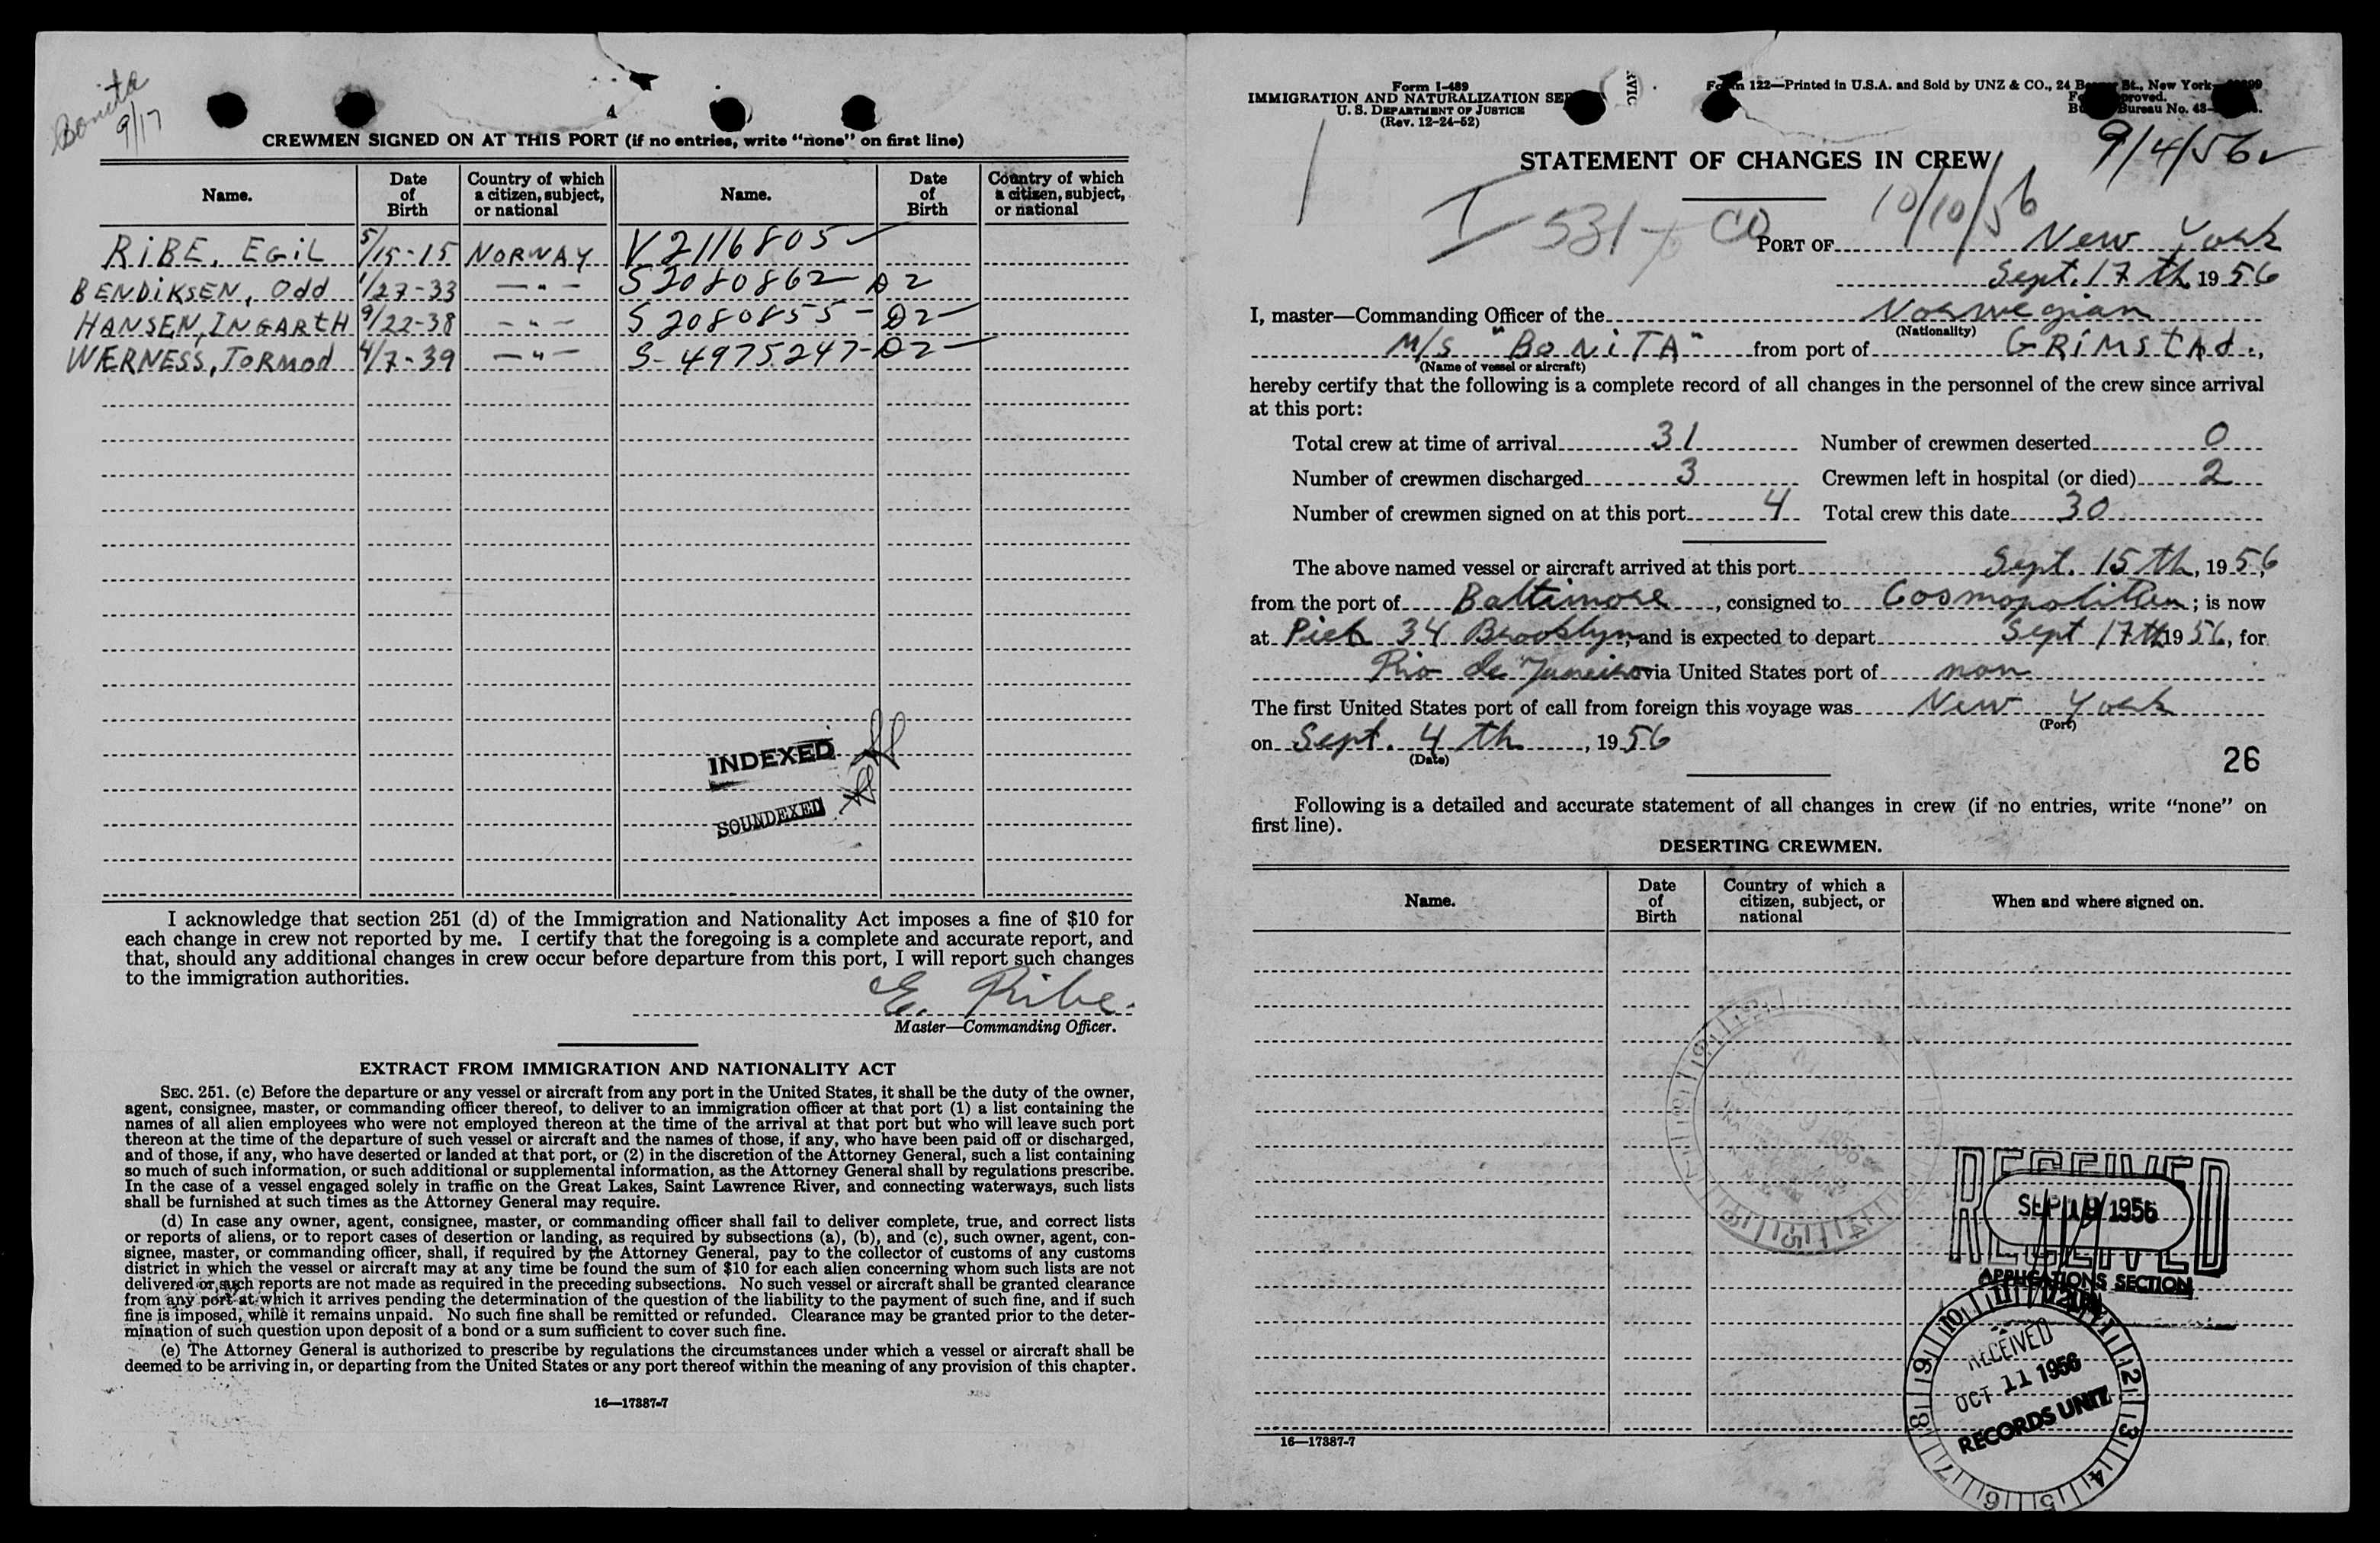 Bonita
9/17
4
CREWMEN SIGNED ON AT THIS PORT (if no entries, write "none" on first line)
Name. Date of Birth Country of which a citizen, subject, or national Name. Date of Birth Country of which a citizen, subject, or national
RiBE, EGiL 5/15-15 NORWAY V2116805
BENDiKSEN, Odd 1/27-33 — " — S2080862- D2
HANSEN, INGARtH 9/22-38 — " — S 2080855 - D2-
WERNESS, TORMod 4/7-39 — " — S-4975247-D2-
INDEXED
SOUNDEXED
I acknowledge that section 251 (d) of the Immigration and Nationality Act imposes a fine of $10 for
each change in crew not reported by me. I certify that the foregoing is a complete and accurate report, and
that, should any additional changes in crew occur before departure from this port, I will report such changes
to the immigration authorities.
E. Ribe.
Master—Commanding Officer.
EXTRACT FROM IMMIGRATION AND NATIONALITY ACT
SEC. 251. (c) Before the departure or any vessel or aircraft from any port in the United States, it shall be the duty of the owner,
agent, consignee, master, or commanding officer thereof, to deliver to an immigration officer at that port (1) a list containing the
names of all alien employees who were not employed thereon at the time of the arrival at that port but who will leave such port
thereon at the time of the departure of such vessel or aircraft and the names of those, if any, who have been paid off or discharged,
and of those, if any, who have deserted or landed at that port, or (2) in the discretion of the Attorney General, such a list containing
so much of such information, or such additional or supplemental information, as the Attorney General shall by regulations prescribe.
In the case of a vessel engaged solely in traffic on the Great Lakes, Saint Lawrence River, and connecting waterways, such lists
shall be furnished at such times as the Attorney General may require.
(d) In case any owner, agent, consignee, master, or commanding officer shall fail to deliver complete, true, and correct lists
or reports of aliens, or to report cases of desertion or landing, as required by subsections (a), (b), and (c), such owner, agent, con-
signee, master, or commanding officer, shall, if required by the Attorney General, pay to the collector of customs of any customs
district in which the vessel or aircraft may at any time be found the sum of $10 for each alien concerning whom such lists are not
delivered or such reports are not made as required in the preceding subsections. No such vessel or aircraft shall be granted clearance
from any port at which it arrives pending the determination of the question of the liability to the payment of such fine, and if such
fine is imposed, while it remains unpaid. No such fine shall be remitted or refunded. Clearance may be granted prior to the deter-
mination of such question upon deposit of a bond or a sum sufficient to cover such fine.
(e) The Attorney General is authorized to prescribe by regulations the circumstances under which a vessel or aircraft shall be
deemed to be arriving in, or departing from the United States or any port thereof within the meaning of any provision of this chapter.
16—17387-7
Form I-489
IMMIGRATION AND NATURALIZATION
U. S. DEPARTMENT OF JUSTICE
(Rev. 12-24-52)
Form 122—Printed in U.S.A. and Sold by UNZ & CO., 24 St., New York
Bureau No. 43-
9/4/56
STATEMENT OF CHANGES IN CREW
10/10/56
I-531 CO
PORT OF New York
Sept. 17 th 1956
I, master—Commanding Officer of the Norwegian
(Nationality)
M/S "BoNiTA" from port of GRiMStAd.,
(Name of vessel or aircraft)
hereby certify that the following is a complete record of all changes in the personnel of the crew since arrival
at this port:
Total crew at time of arrival 31 Number of crewmen deserted 0
Number of crewmen discharged 3 Crewmen left in hospital (or died) 2
Number of crewmen signed on at this port 4 Total crew this date 30
The above named vessel or aircraft arrived at this port Sept. 15 th, 1956
from the port of Baltimore, consigned to Cosmopolitan; is now
at Pier 34 Brooklyn, and is expected to depart Sept 17th 1956, for
Rio de Janeiro via United States port of non
The first United States port of call from foreign this voyage was New York
(Port)
on Sept. 4 th, 1956
(Date)
26
Following is a detailed and accurate statement of all changes in crew (if no entries, write "none" on
first line).
DESERTING CREWMEN.
Name. Date of Birth Country of which a citizen, subject, or national When and where signed on.
RECEIVED
SEP 19 1956
APPLICATIONS SECTION
RECEIVED
OCT 11 1956
RECORDS UNIT
16—17387-7